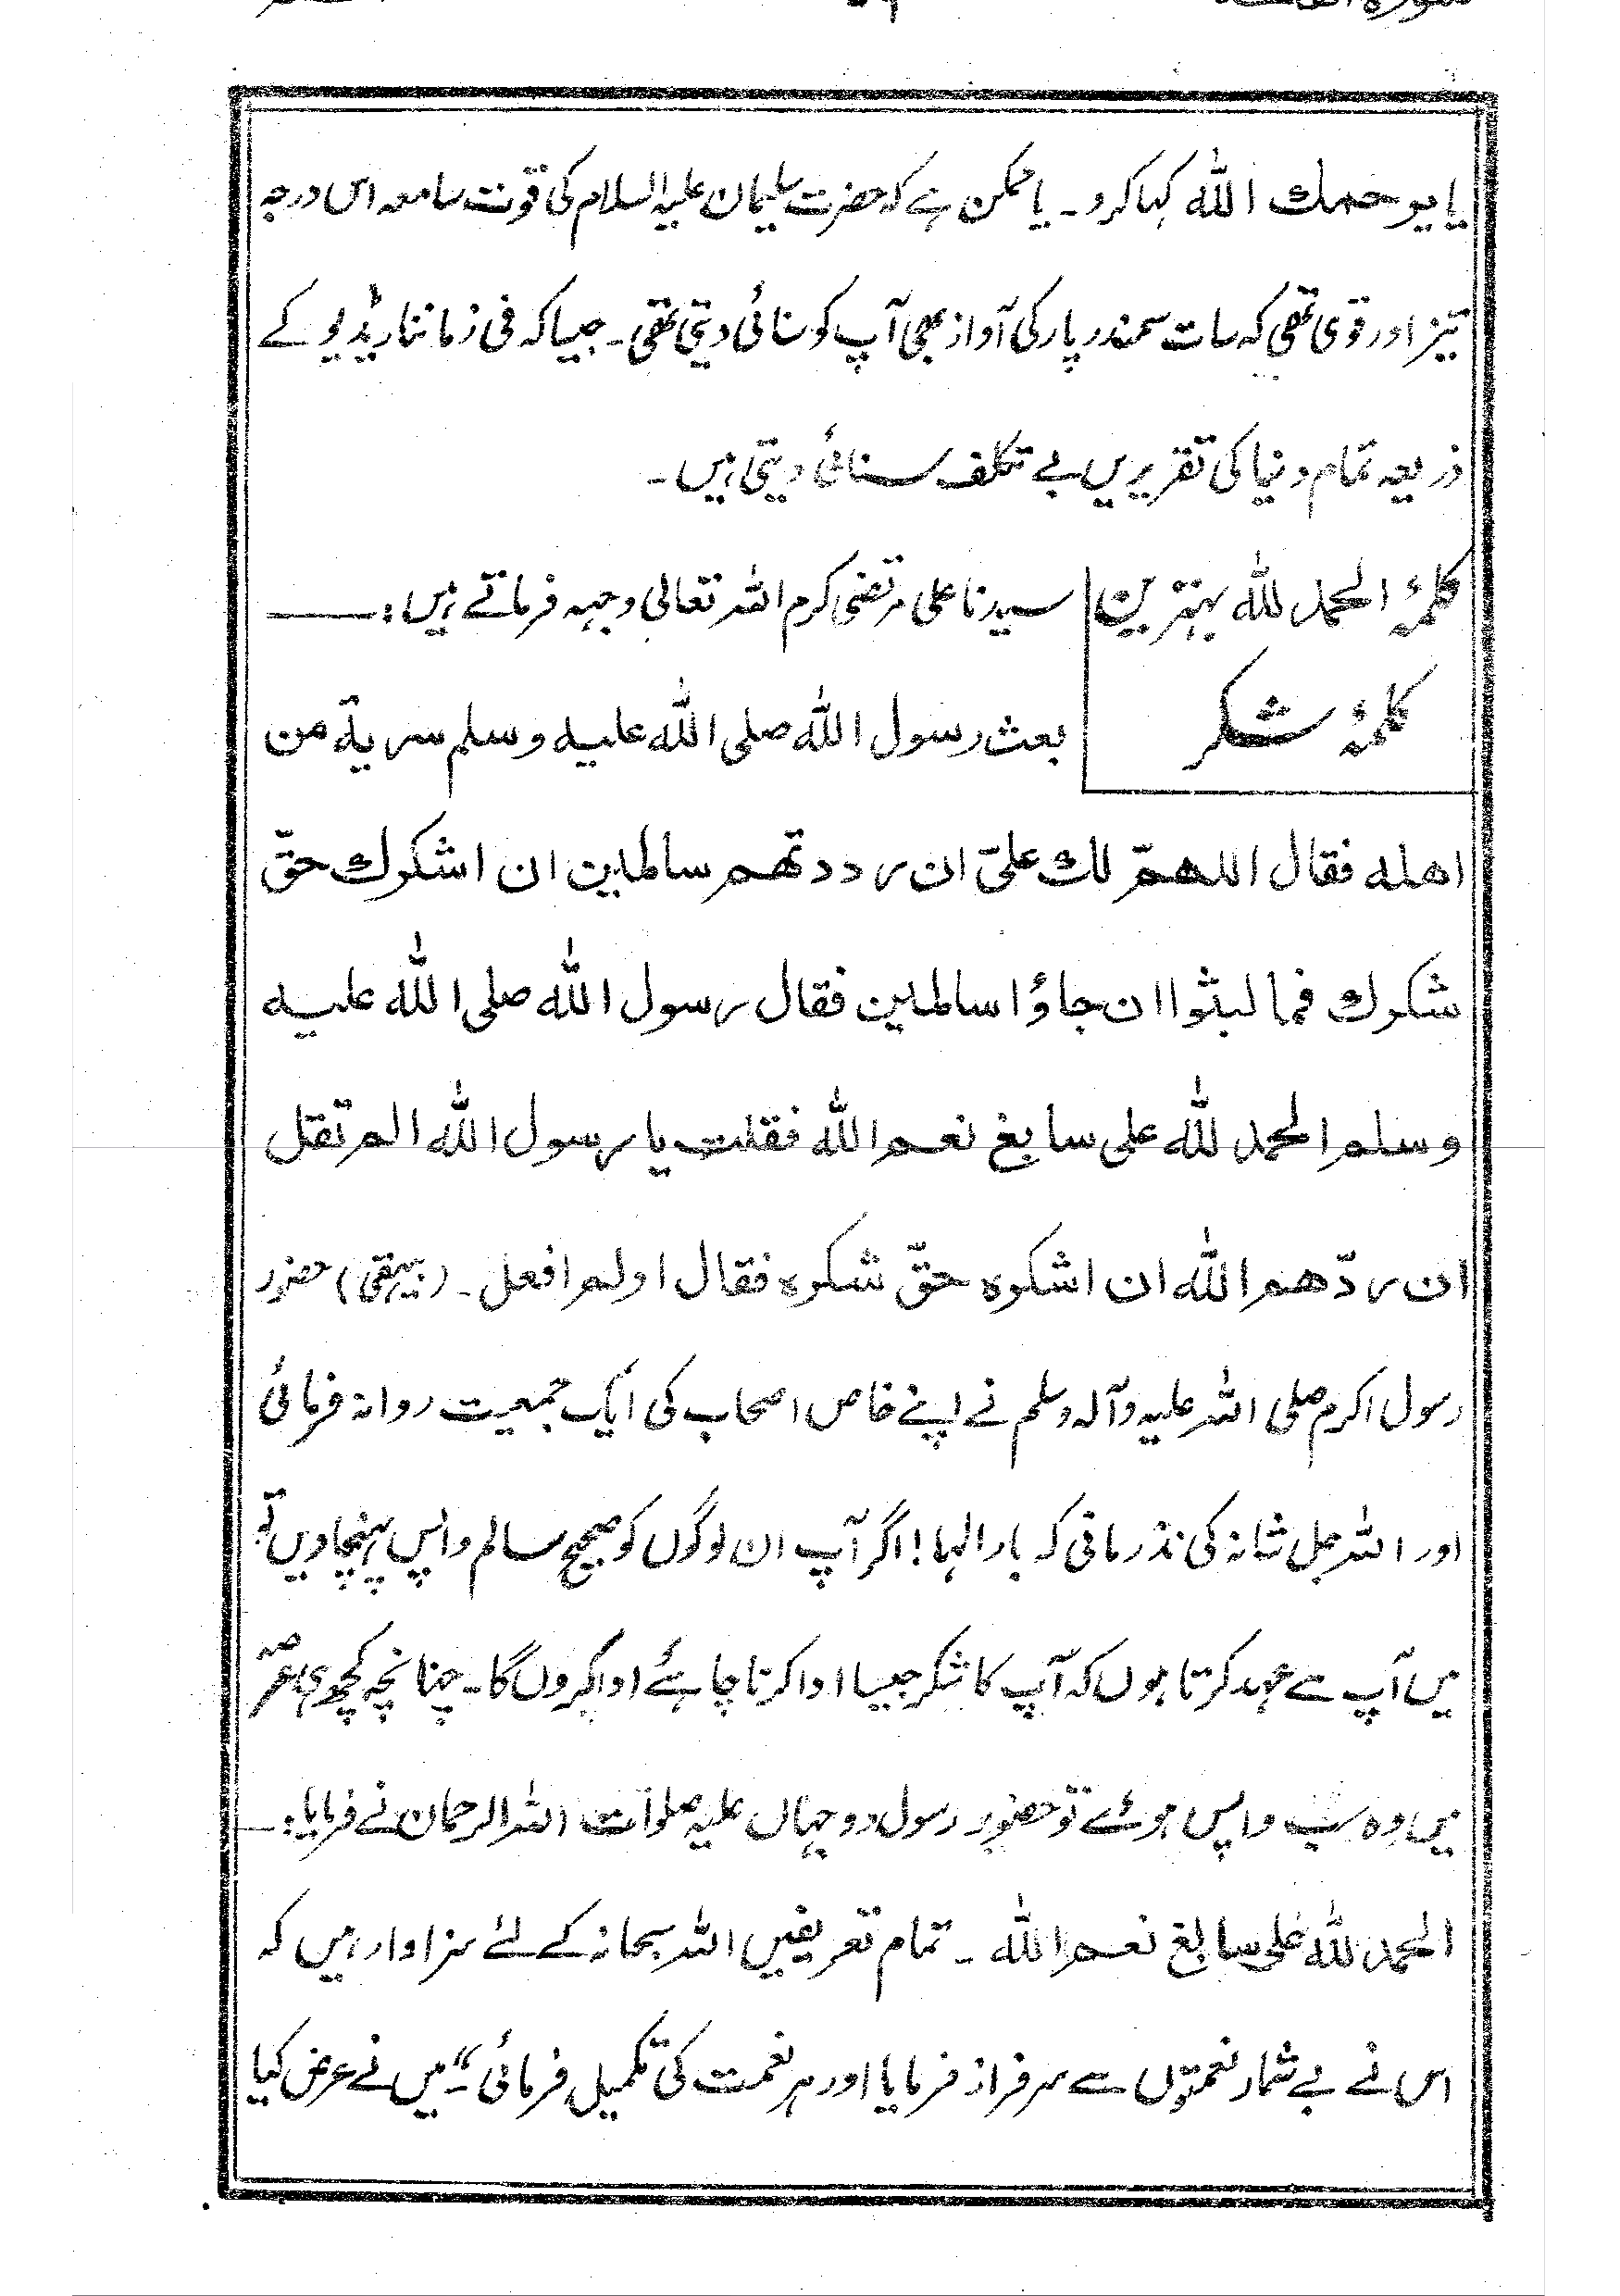 یا یرحمك اللّٰه کہا کرو۔ یا ممکن ہے کہ حضرت سلیمان علیہ السلام کی قوت سامعہ اس درجہ
تیز اور قوی تھی کہ سات سمندر پار کی آواز بھی آپ کو سنائی دیتی تھی۔ جیسا کہ فی زماننا ریڈیو کے
ذریعہ تمام دنیا کی تقریریں بے تکلف سنائی دیتی ہیں۔
کلمۂ الحمد للّٰه بہترین
کلمۂ شکر
سیدنا علی مرتضیٰ کرم اللہ تعالیٰ وجہہ فرماتے ہیں:
بعث رسول اللّٰه صلی اللّٰه علیه وسلم سریة من
اهله فقال اللهمّ لك علیّ ان رددتهم سالمین ان اشکرك حقّ
شکرك فما لبثوا ان جاؤا سالمین فقال رسول اللّٰه صلی اللّٰه علیه
وسلم الحمد للّٰه علی سابغ نعم اللّٰه فقلت یا رسول اللّٰه الم تقل
ان ردّهم اللّٰه ان اشکره حقّ شکره فقال اولم افعل۔ (بیہقی) حضور
رسول اکرم صلی اللہ علیہ وآلہ وسلم نے اپنے خاص اصحاب کی ایک جمعیت روانہ فرمائی
اور اللہ جل شانہ کی نذر مانی کہ بار الہا! اگر آپ ان لوگوں کو صحیح سالم واپس پہنچا دیں تو
میں آپ سے عہد کرتا ہوں کہ آپ کا شکر جیسا ادا کرنا چاہئے ادا کروں گا۔ چنانچہ کچھ ہی عرصہ
میں وہ سب واپس ہوئے تو حضور رسول دو جہاں علیہ صلوات اللہ الرحمان نے فرمایا:
الحمد للّٰه علی سابغ نعم اللّٰه ۔ تمام تعریفیں اللہ سبحانہ کے لئے سزاوار ہیں کہ
اس نے بے شمار نعمتوں سے سرفراز فرمایا اور ہر نعمت کی تکمیل فرمائی"۔ میں نے عرض کیا